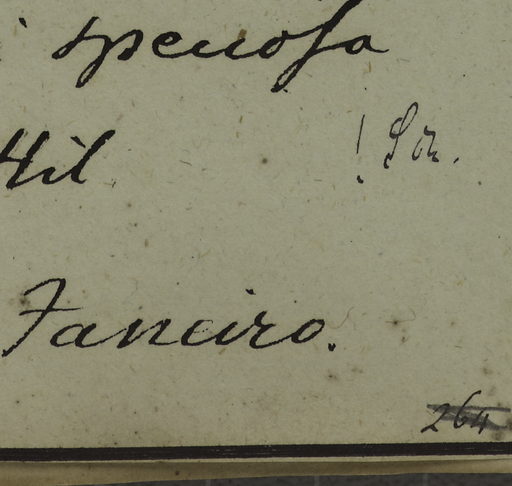 spenosa
Hil ! Sn.
Janeiro.
264